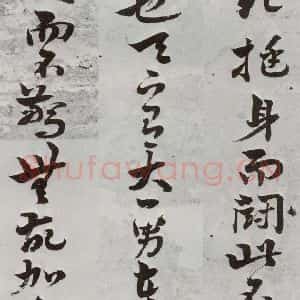 起挺身而鬪此不
也天下有大勇者
而不驚無故加
Shufawang.cn